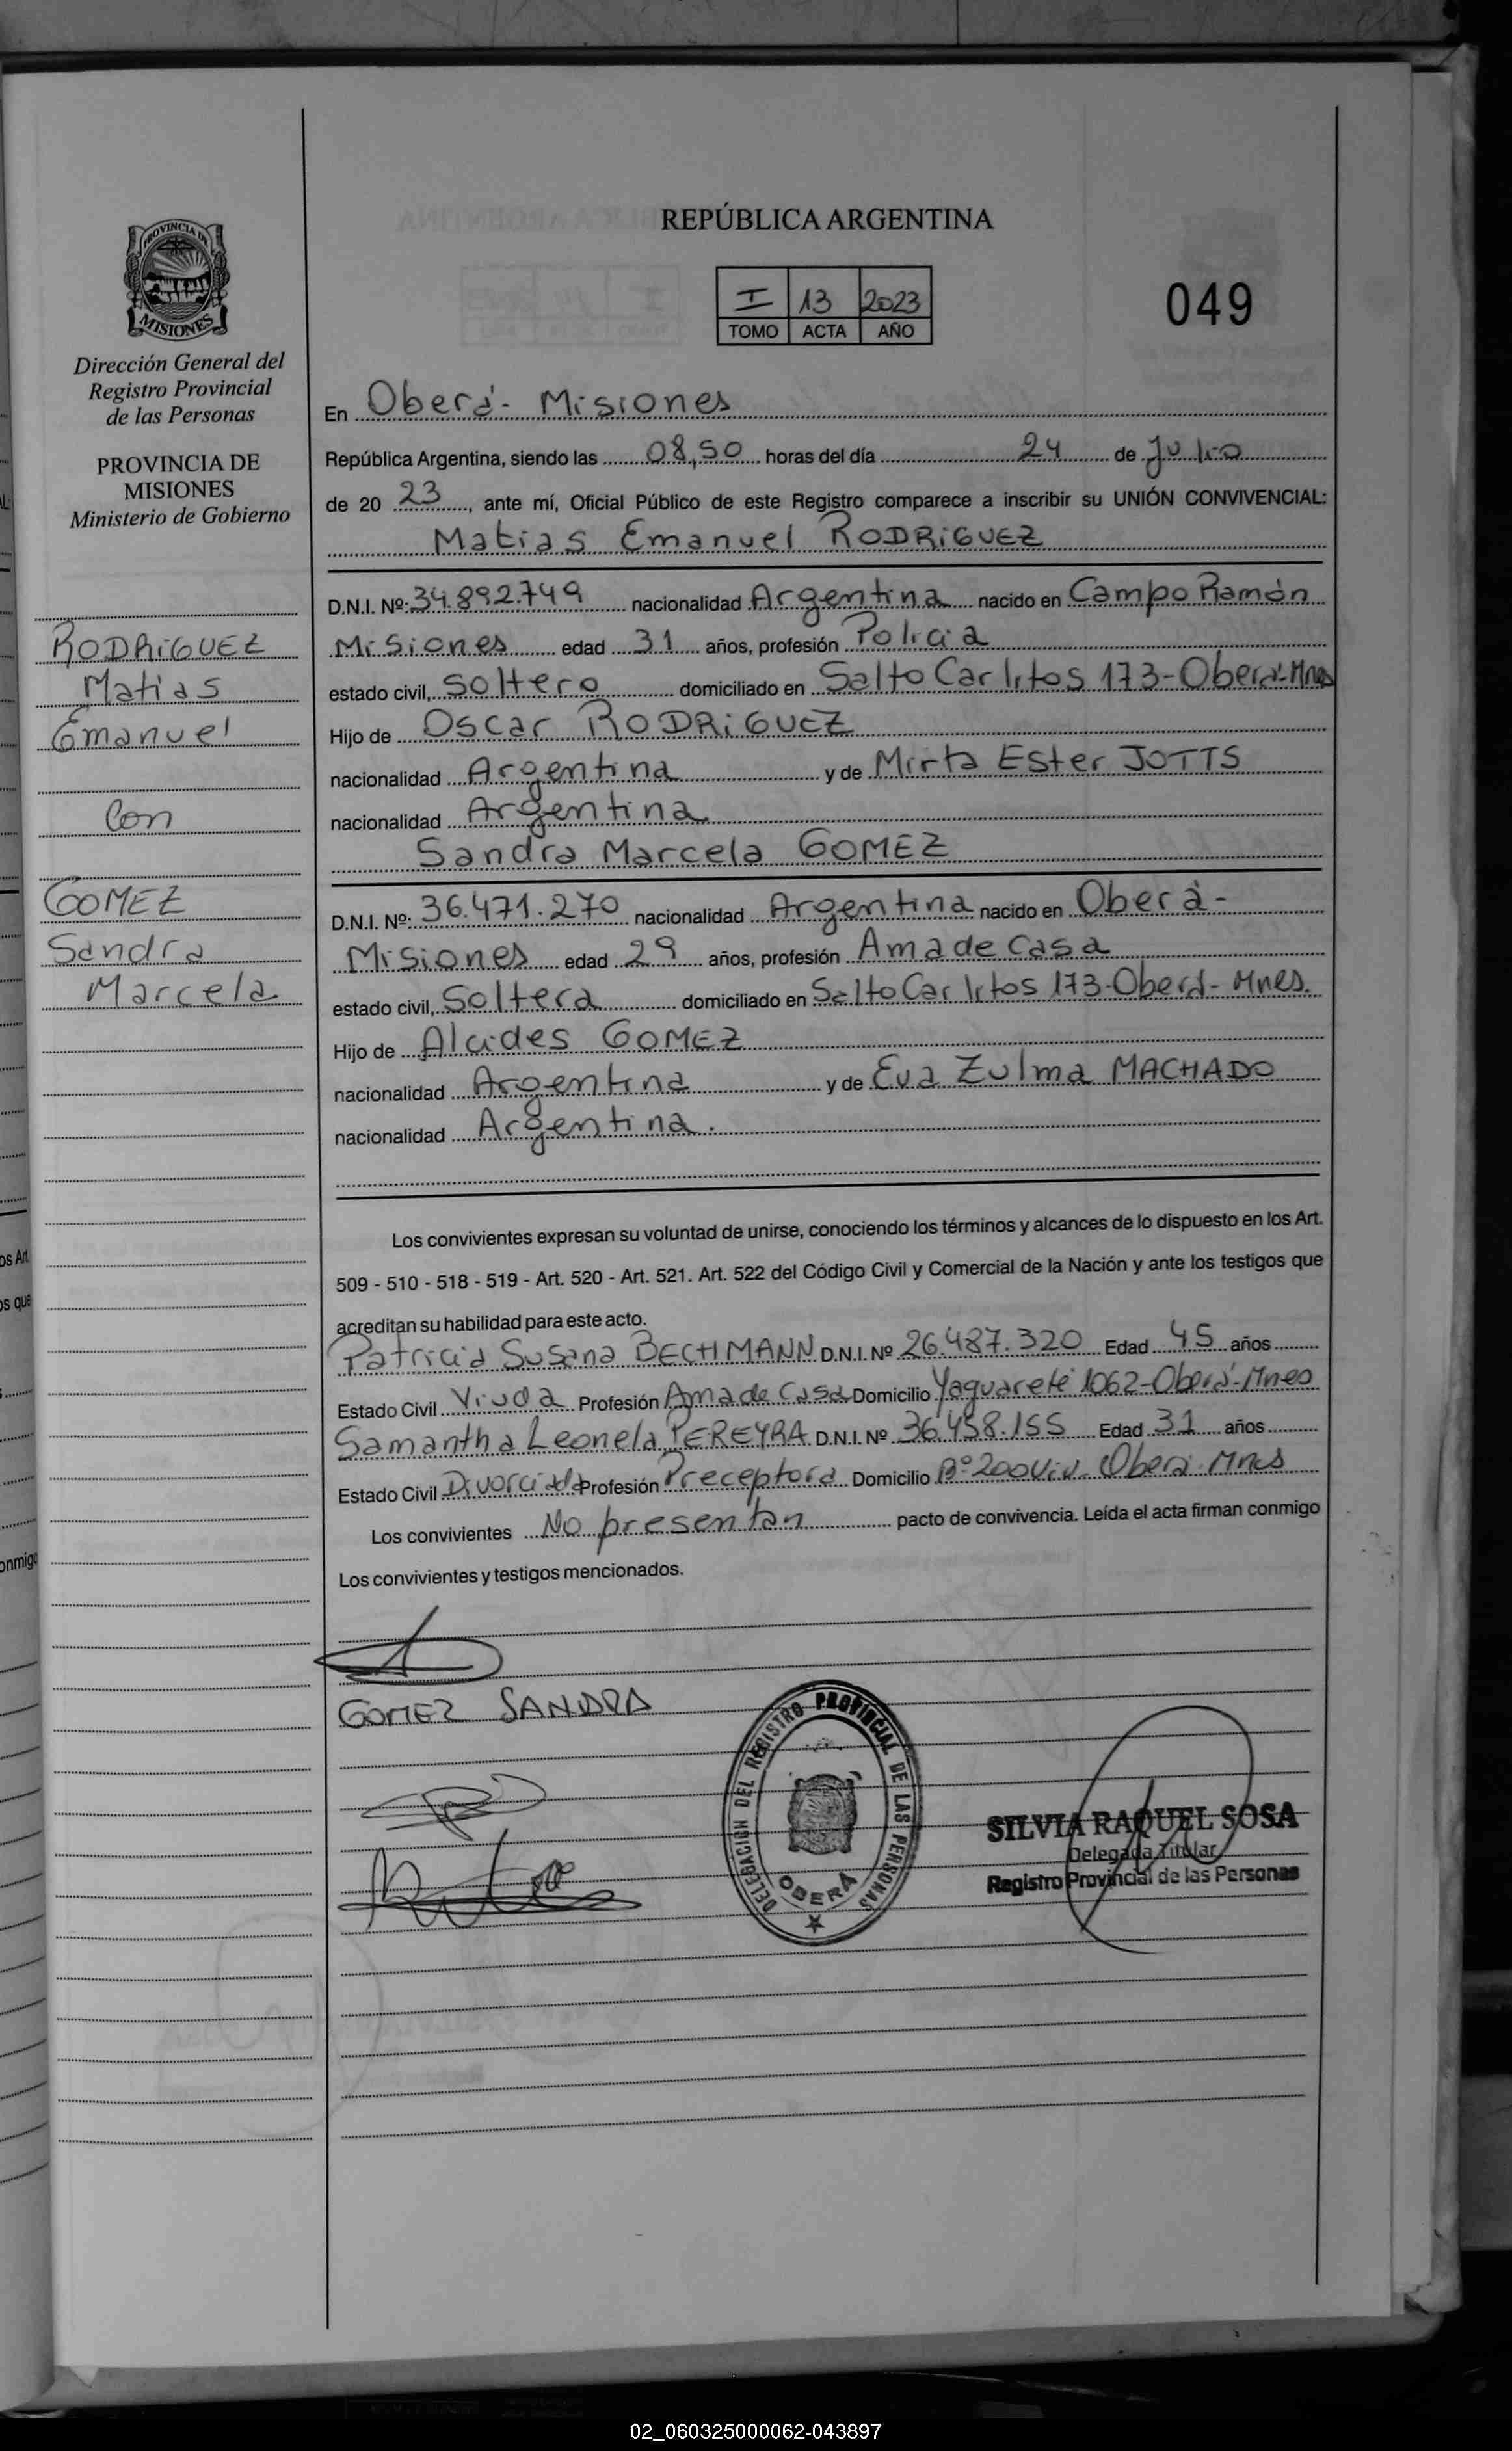 REPÚBLICA ARGENTINA
I 13 2023
TOMO ACTA AÑO
049
PROVINCIA DE
MISIONES
Dirección General del
Registro Provincial
de las Personas
PROVINCIA DE
MISIONES
Ministerio de Gobierno
RODRiGUEZ
Matias
Emanuel
Con
GOMEZ
Sandra
Marcela
En Oberá - Misiones
República Argentina, siendo las 08,50 horas del día 24 de Julio
de 20 23, ante mí, Oficial Público de este Registro comparece a inscribir su UNIÓN CONVIVENCIAL:
Matias Emanuel RODRiGUEZ
D.N.I. Nº: 34.892.749 nacionalidad Argentina nacido en Campo Ramón
Misiones edad 31 años, profesión Policia
estado civil, Soltero domiciliado en Salto Carlitos 173-Oberá-Mnes
Hijo de Oscar RODRiGUEZ
nacionalidad Argentina y de Mirta Ester JOTTS
nacionalidad Argentina
Sandra Marcela GOMEZ
D.N.I. Nº: 36.471.270 nacionalidad Argentina nacido en Oberá -
Misiones edad 29 años, profesión Ama de Casa
estado civil, Soltera domiciliado en Salto Carlitos 173-Oberá-Mnes.
Hijo de Alcides GOMEZ
nacionalidad Argentina y de Eva Zulma MACHADO
nacionalidad Argentina.
Los convivientes expresan su voluntad de unirse, conociendo los términos y alcances de lo dispuesto en los Art.
509 - 510 - 518 - 519 - Art. 520 - Art. 521. Art. 522 del Código Civil y Comercial de la Nación y ante los testigos que
acreditan su habilidad para este acto.
Patricia Susana BECHMANN D.N.I. Nº 26.487.320 Edad 45 años
Estado Civil Viuda Profesión Ama de Casa Domicilio Yaguareté 1062-Oberá-Mnes
Samantha Leonela PEREYRA D.N.I. Nº 36.458.155 Edad 31 años
Estado Civil Divorciada Profesión Preceptora Domicilio Bº 200 Viv. Oberá-Mnes
Los convivientes No presentan pacto de convivencia. Leída el acta firman conmigo
Los convivientes y testigos mencionados.
GOMEZ SANDRA
DELEGACION DEL REGISTRO PROVINCIAL DE LAS PERSONAS
OBERÁ
SILVIA RAQUEL SOSA
Delegada Titular
Registro Provincial de las Personas
02_060325000062-043897